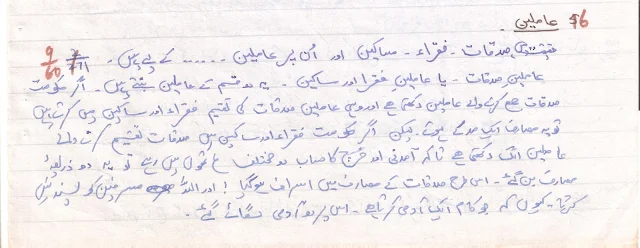 56 عاملین
حقیقت میں صدقات - فقراء - مساکین اور اُن پر عاملین ...... کے لیے ہیں - 9/60
عاملین صدقات - یا عاملین فقراء اور مساکین - یہ دو قسم کے عاملین بنتے ہیں - اگر حکومت
صدقات جمع کرنے والے عاملین رکھتی ہے اور وہی عاملین صدقات کی تقسیم فقراء اور مساکین میں کرتے ہیں
تو یہ مصارف ایک مد کے ہوئے - لیکن اگر حکومت فقراء اور مساکین میں صدقات تقسیم کرنے والے
عاملین الگ رکھتی ہے تاکہ آمدنی اور خرچ کا حساب دو مختلف میں رہے تو یہ دو
مصارف بن گئے - اس طرح صدقات کے مصارف میں اسراف ہو گیا ! اور اللہ مسرفین کو پسند نہیں
کرتا - کیوں کہ جو کام ایک آدمی کرتا ہے - اس پر دو آدمی لگائے گئے -